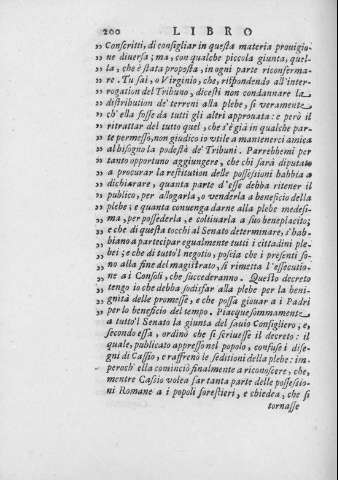 200 LIBRO
„ Conscritti, di consigliar in questa materia prouigio-
„ ne diuersa; ma, con qualche piccola giunta, quel-
„ la, che è stata proposta, in ogni parte riconferma-
„ re. Tu sai, o Virginio, che, rispondendo all'inter-
„ rogation del Tribuno, dicesti non condannare la
„ distribution de' terreni alla plebe, si veramente
„ ch'ella fosse da tutti gli altri approuata: e però il
„ ritrattar del tutto quel, che s'è già in qualche par-
„ te permesso, non giudico io vtile a mantenerci amica
„ al bisogno la podestà de' Tribuni. Parrebbemi per
„ tanto opportuno aggiungere, che chi sarà diputato
„ a procurar la restitution delle possessioni habbia a
„ dichiarare, quanta parte d'esse debba ritener il
„ publico, per allogarla, o venderla a beneficio della
„ plebe; e quanta conuenga darne alla plebe medesi-
„ ma, per possederla, e coltiuarla a suo beneplacito;
„ e che di questa tocchi al Senato determinare, s'hab-
„ biano a partecipar egualmente tutti i cittadini ple-
„ bei; e che di tutto'l negotio, poscia che i presenti so-
„ no alla fine del magistrato, si rimetta l'essecutio-
„ ne a i Consoli, che succederanno. Questo decreto
„ tengo io che debba sodisfar alla plebe per la beni-
„ gnità delle promesse, e che possa giouar a i Padri
„ per lo beneficio del tempo. Piacque sommamente
a tutto'l Senato la giunta del sauio Consigliero; e,
secondo essa, ordinò che si scriuesse il decreto: il
quale, publicato appresso nel popolo, confuse i dise-
gni di Cassio, e raffrenò le seditioni della plebe: im-
peroch' ella cominciò finalmente a riconoscere, che,
mentre Cassio volea far tanta parte delle possessio-
ni Romane a i popoli forestieri, e chiedea, che si
tornasse